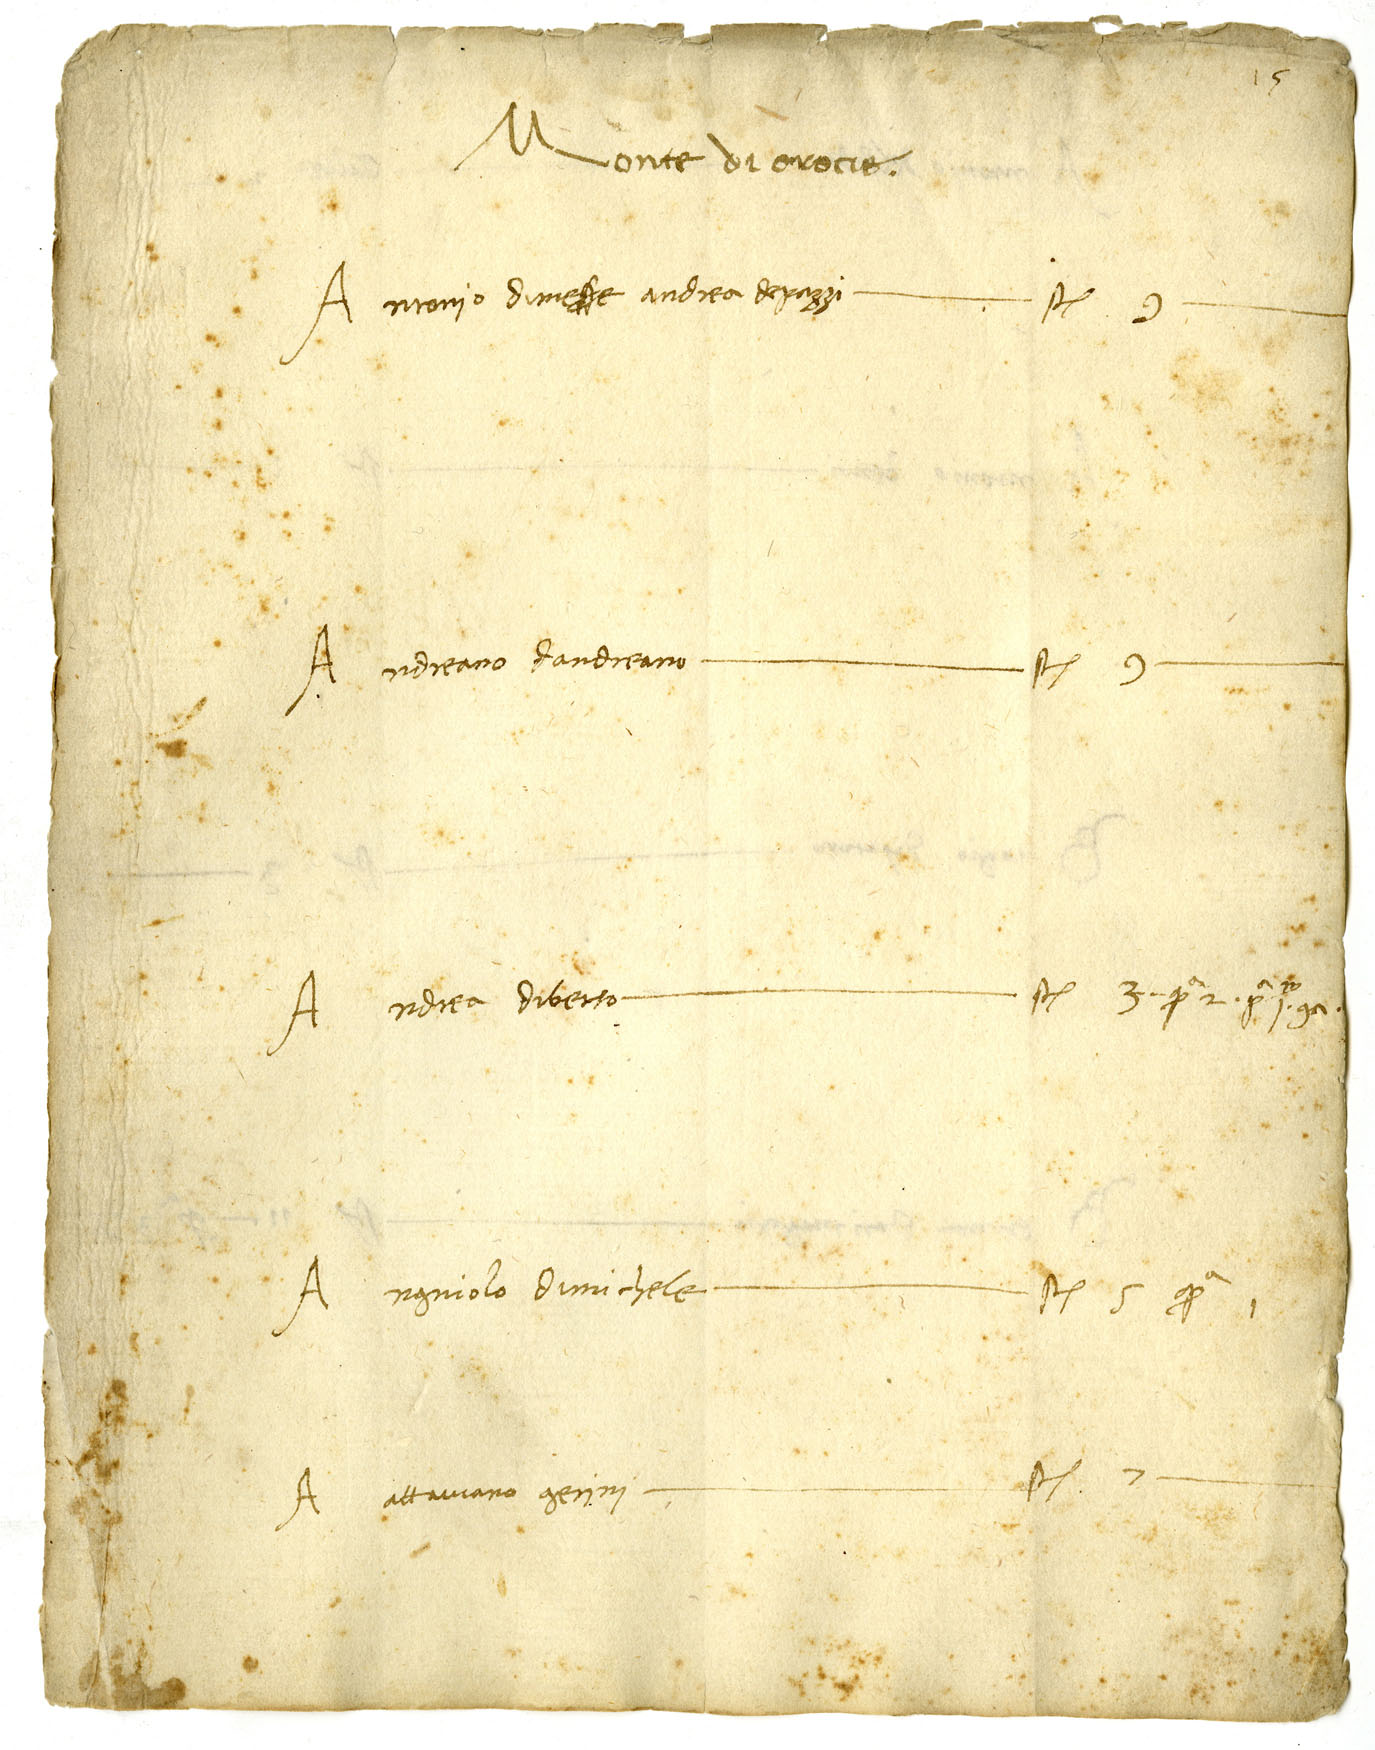 15
Monte di crocie.
Antonjo dimesse andrea depazzi st 9
Andreano dandreano st 9
Andrea diberto st 3 qra 2
Angniolo dimichele st 5 qra 1
A attaviano gerini st 7